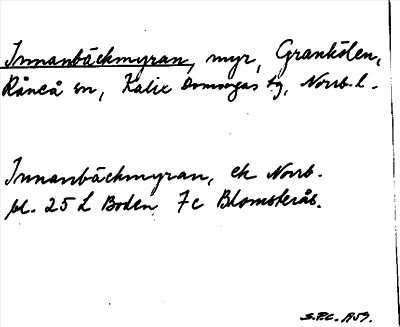 Innanbäckmyran, myr, Grankölen,
Råneå sn, Kalix domsagas tg, Norrb. l.
Innanbäckmyran, ek Norrb.
bl. 25 L Boden 7c Blomsterås.
S.P.C. 1959.